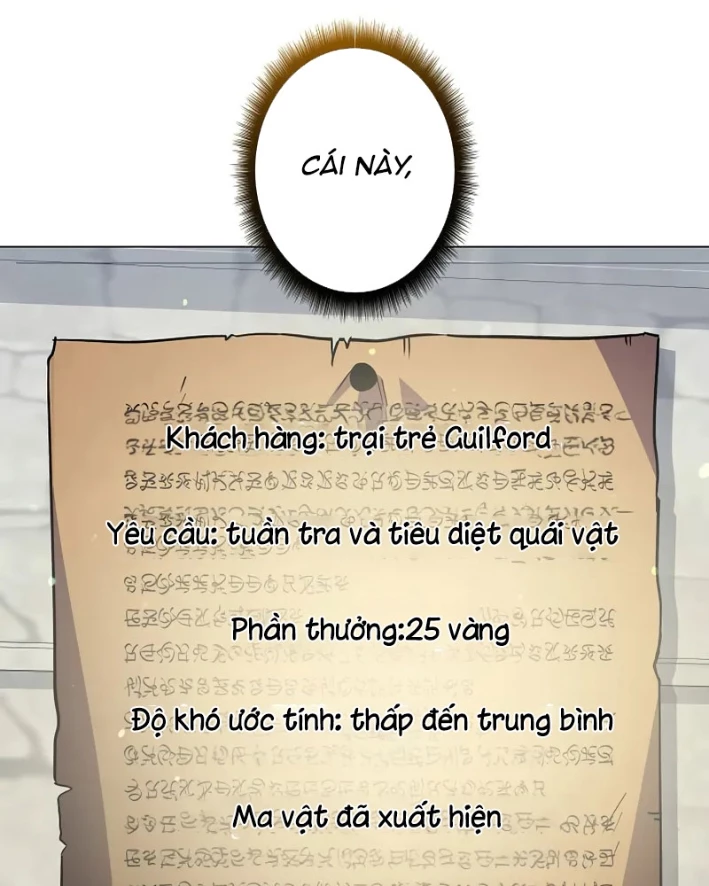 CÁI NÀY,
Khách hàng: trại trẻ Guilford
Yêu cầu: tuần tra và tiêu diệt quái vật
Phần thưởng:25 vàng
Độ khó ước tính: thấp đến trung bình
Ma vật đã xuất hiện